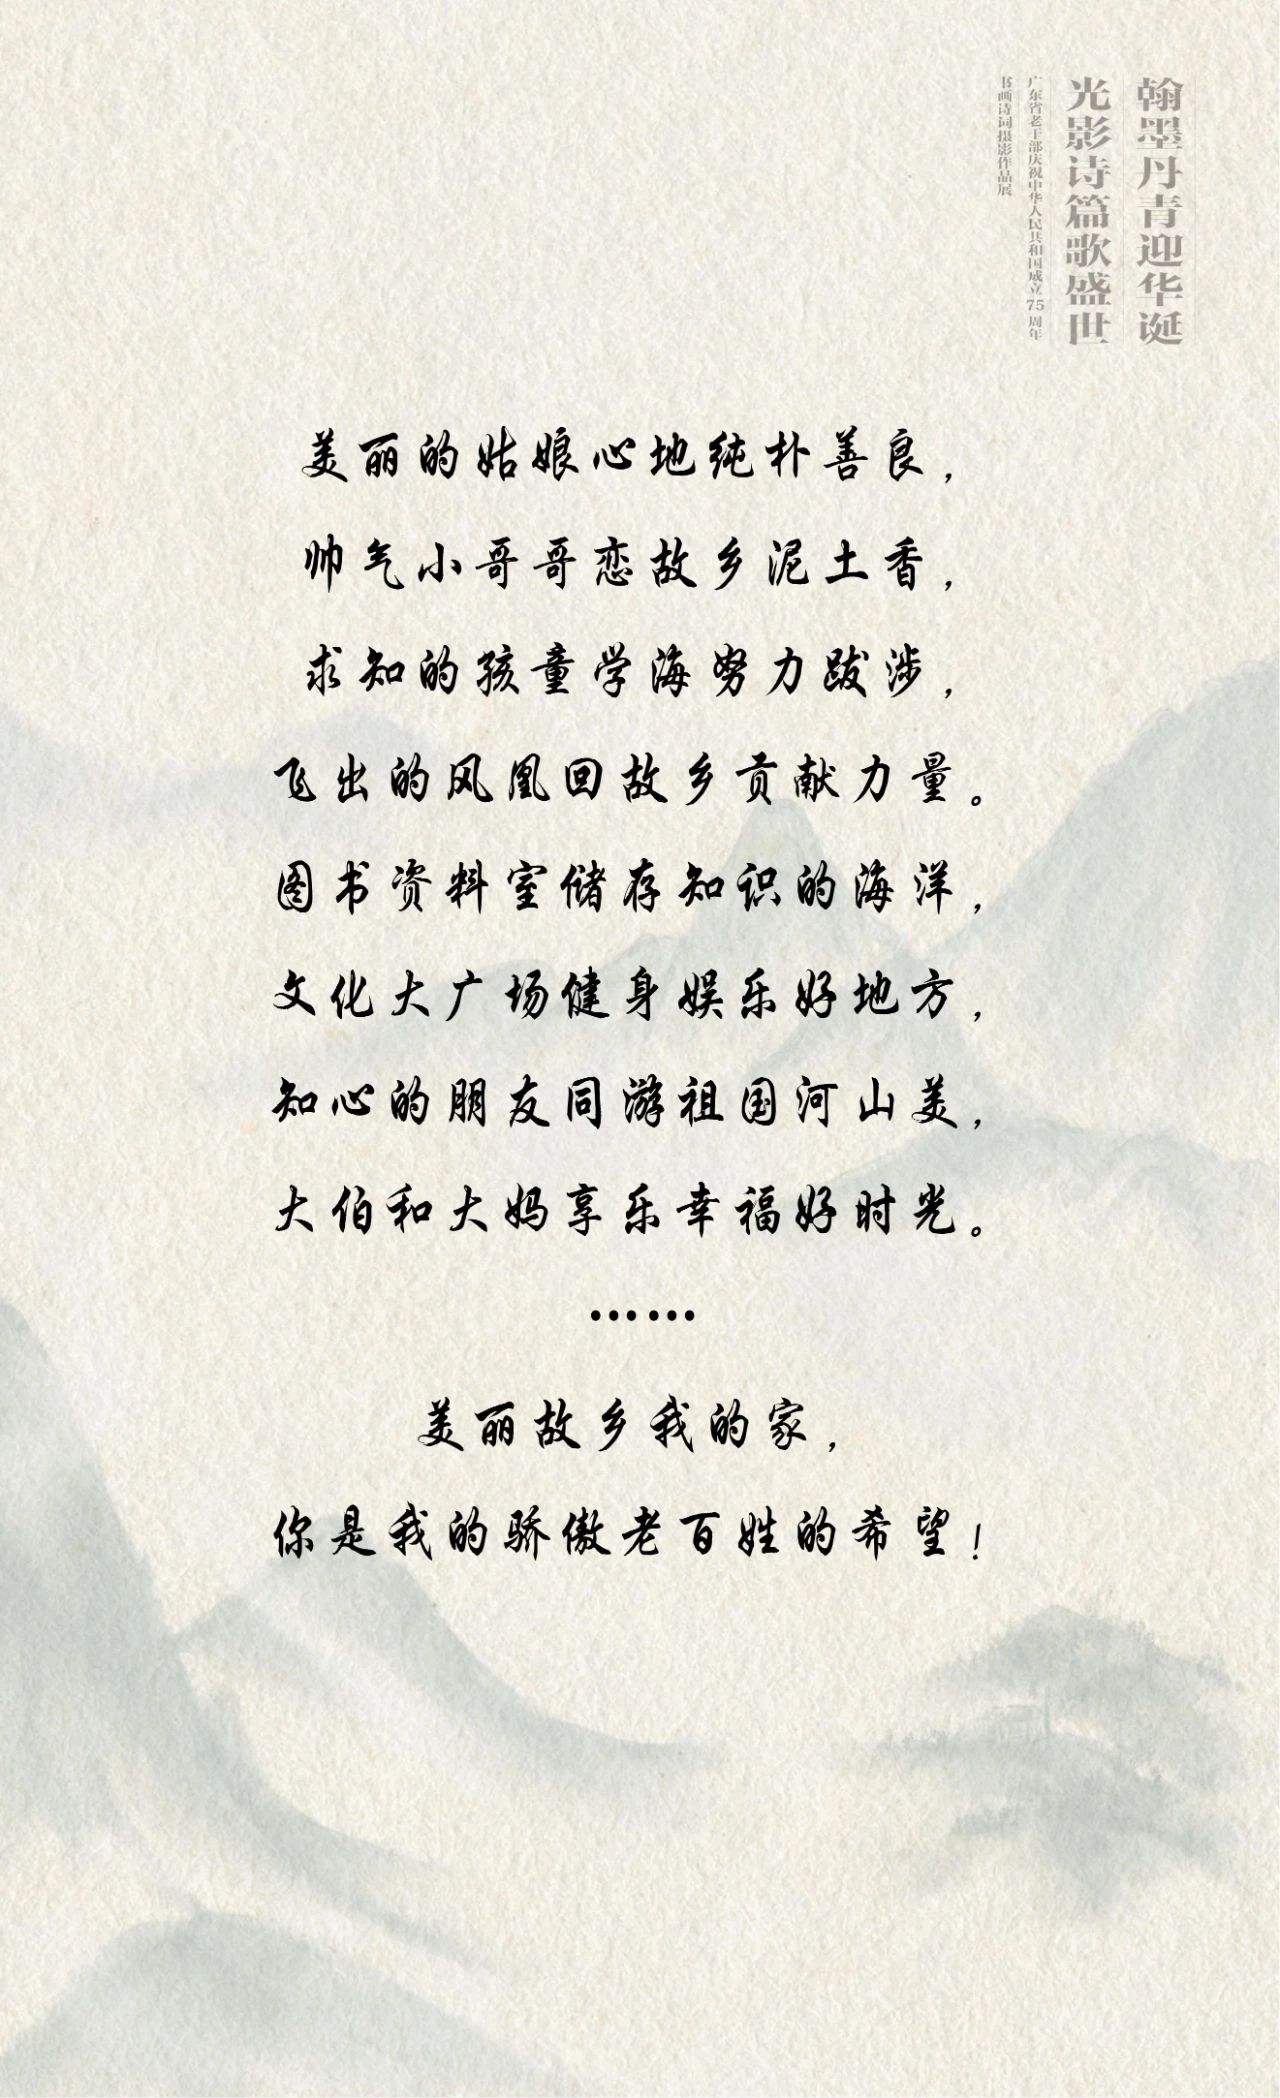 翰墨丹青迎华诞
光影诗篇歌盛世
广东省老干部庆祝中华人民共和国成立75周年
书画诗词摄影作品展
美丽的姑娘心地纯朴善良，
帅气小哥哥恋故乡泥土香，
求知的孩童学海努力跋涉，
飞出的风凰回故乡贡献力量。
图书资料室储存知识的海洋，
文化大广场健身娱乐好地方，
知心的朋友同游祖国河山美，
大伯和大妈享乐幸福好时光。
······
美丽故乡我的家，
你是我的骄傲老百姓的希望！